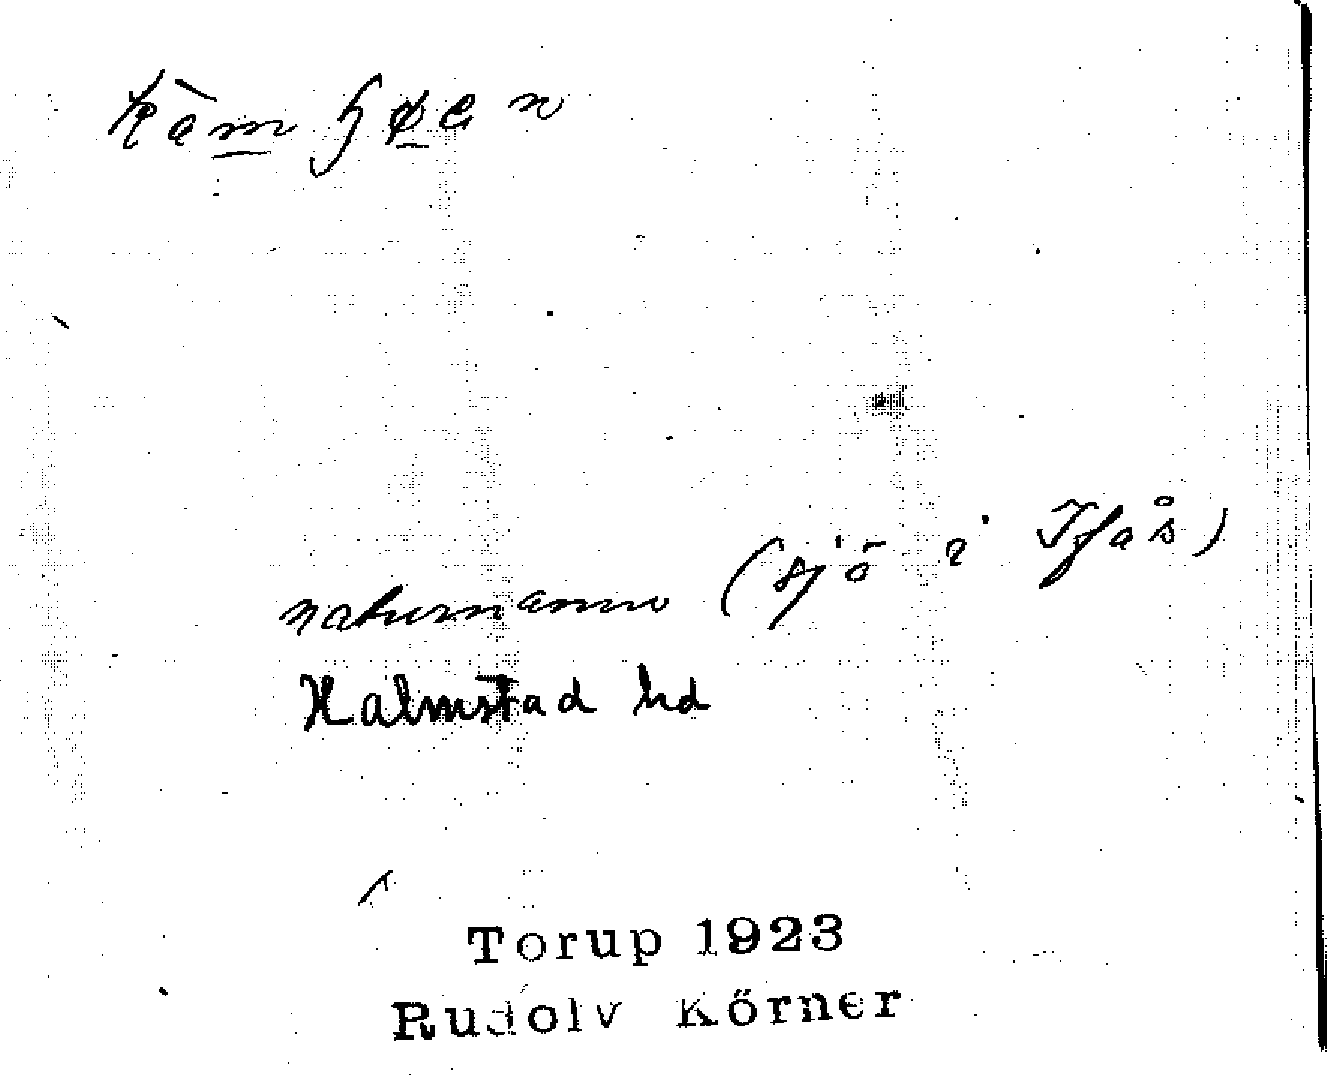 naturnamn (sjö i Ifås)
Halmstad hd
Torup 1923
Rudolv Körner